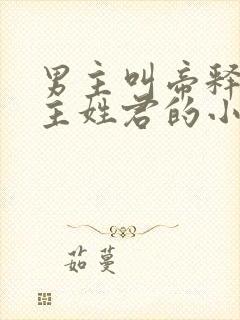 男主叫帝释
主姓君的小
茹蔓